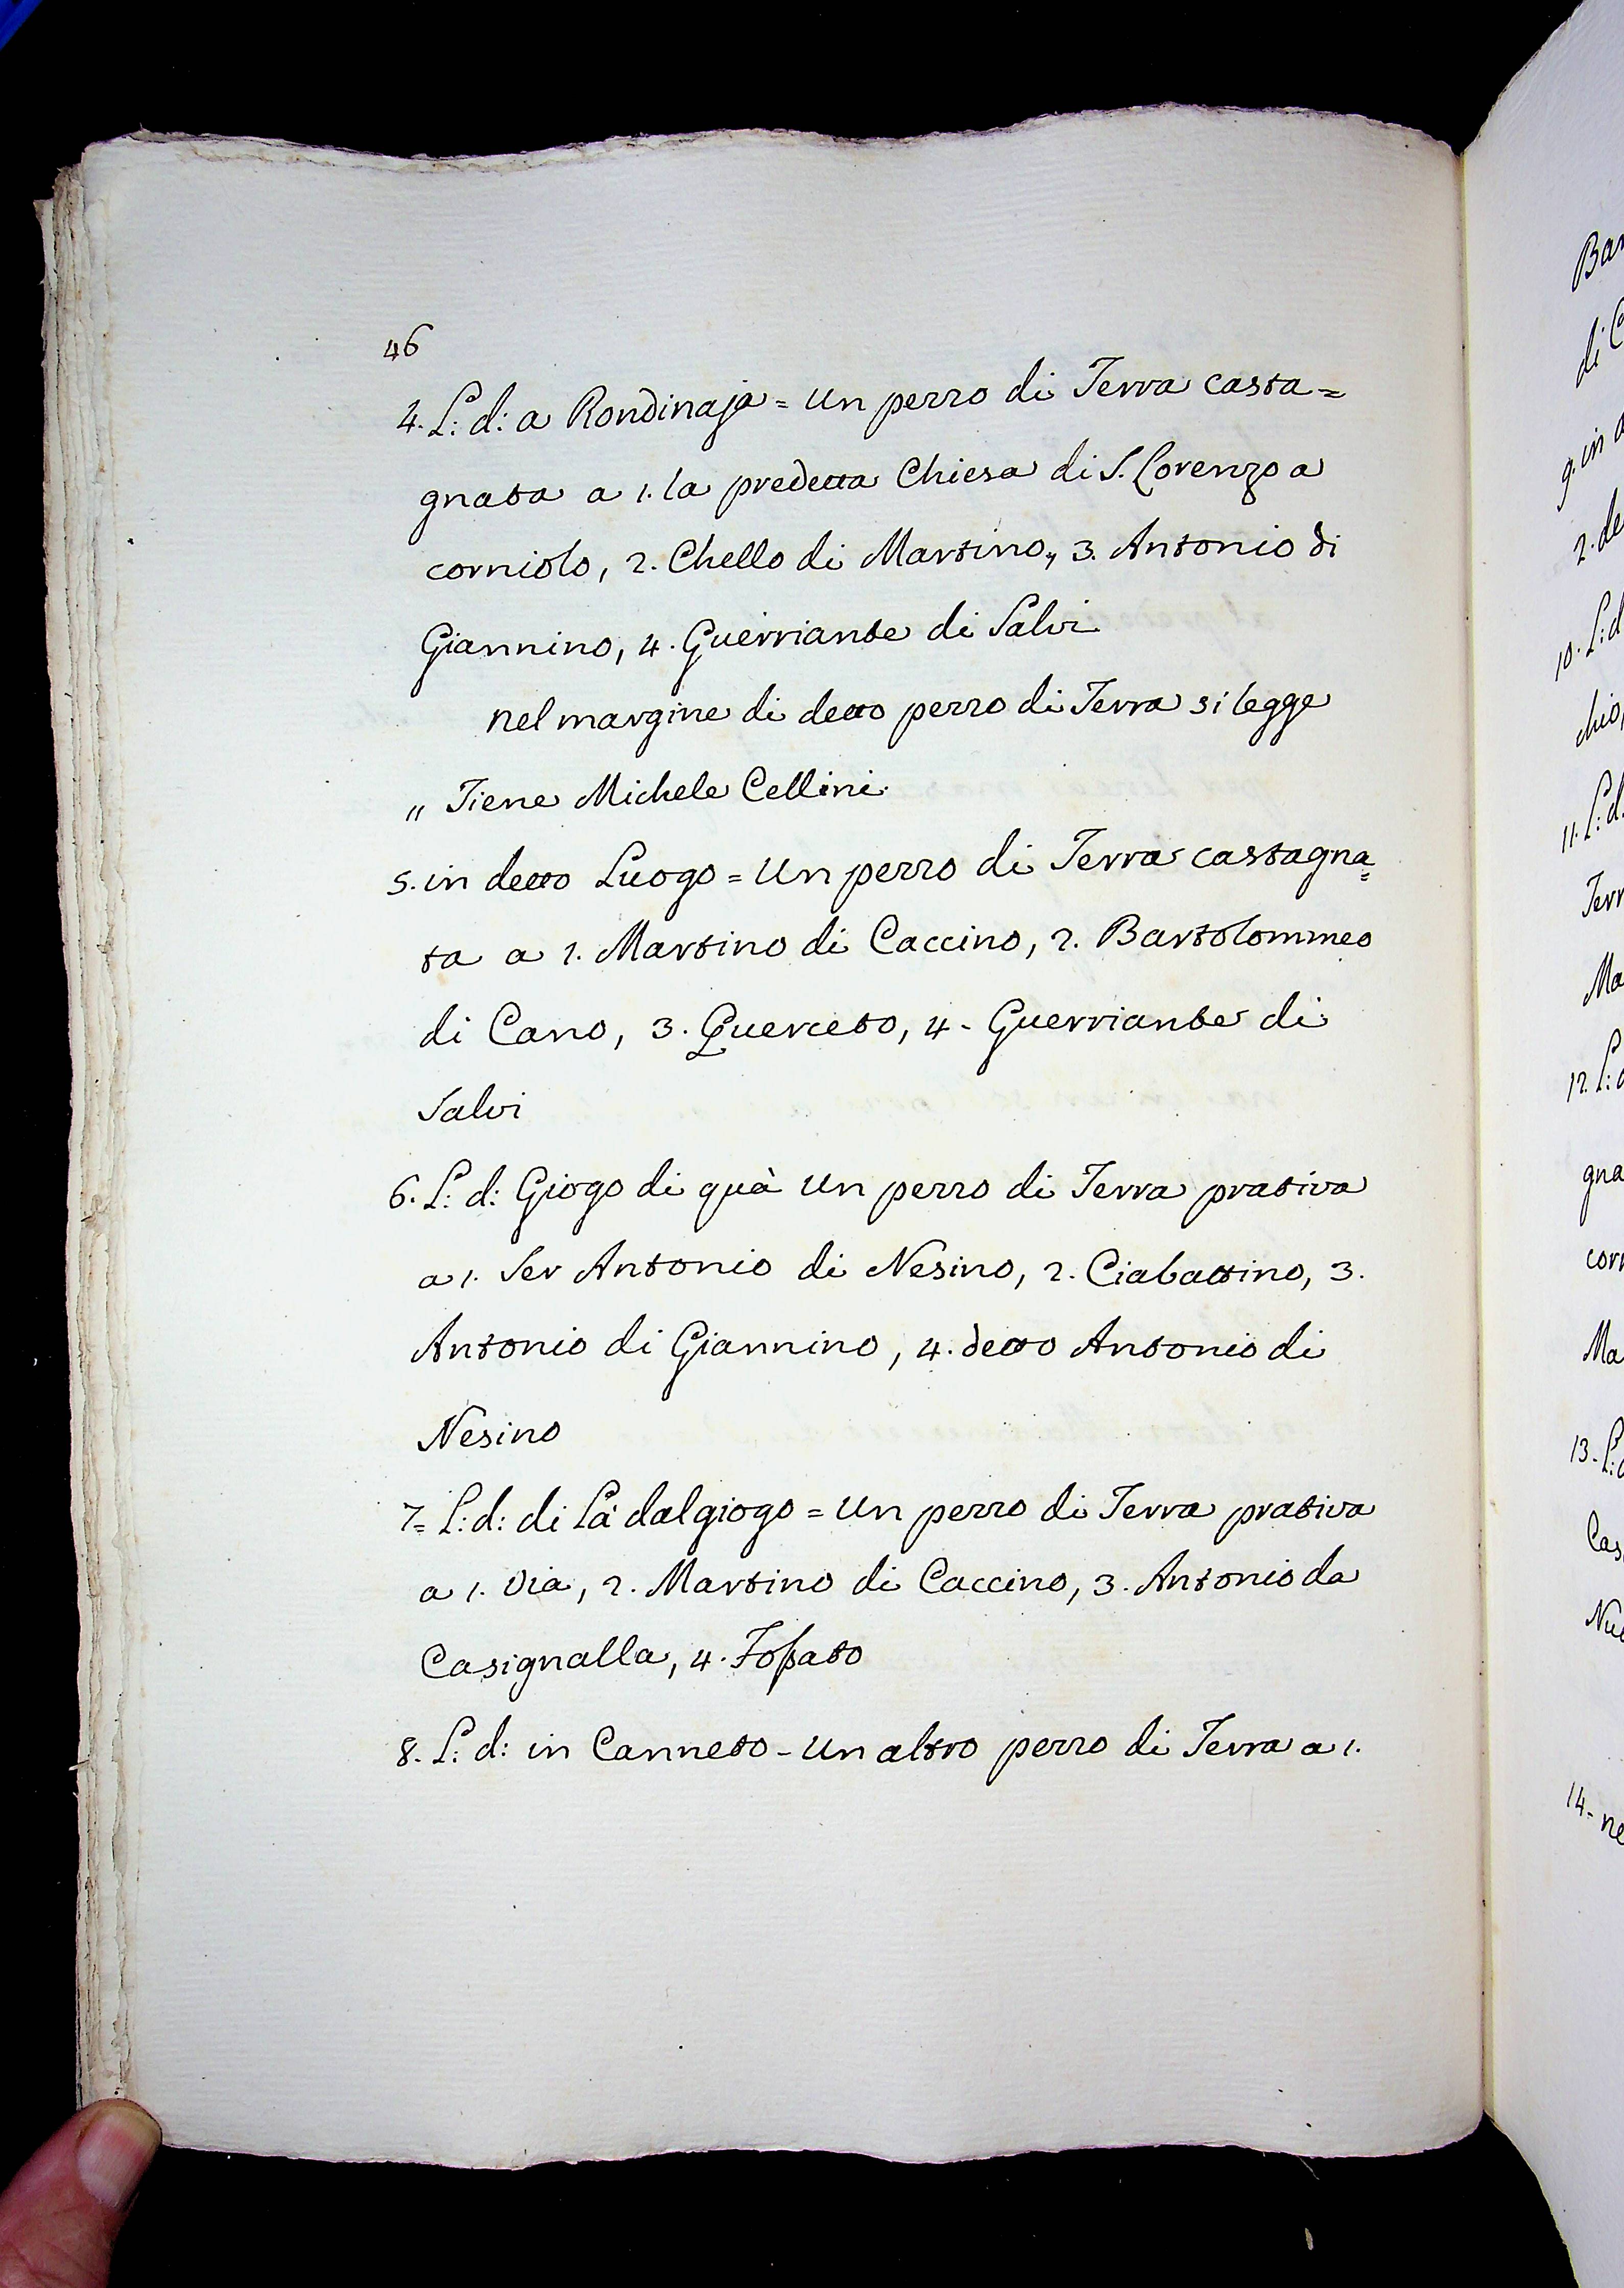 46
4. L: d: a Rondinaja = un pezzo di Terra casta=
gnata a 1. la predetta Chiesa di S. Lorenzo a
corniolo, 2. Chello di Martino, 3. Antonio di
Giannino, 4. Guerriante di Salvi
nel margine di detto pezzo di Terra si legge
„ Tiene Michele Cellini.
5. in detto Luogo = Un pezzo di Terra castagna=
ta a 1. Martino di Caccino, 2. Bartolommeo
di Cano, 3. Querceto, 4. Guerriante di
Salvi
6. L: d: Giogo di quà un pezzo di Terra prativa
a 1. Ser Antonio di Nesino, 2. Ciabattino, 3.
Antonio di Giannino, 4. detto Antonio di
Nesino
7= L: d: di Là dal giogo = un pezzo di Terra prativa
a 1. Via, 2. Martino di Caccino, 3. Antonio da
Casignalla, 4. Fossato
8. L: d: in Canneto - un altro pezzo di Terra a 1.